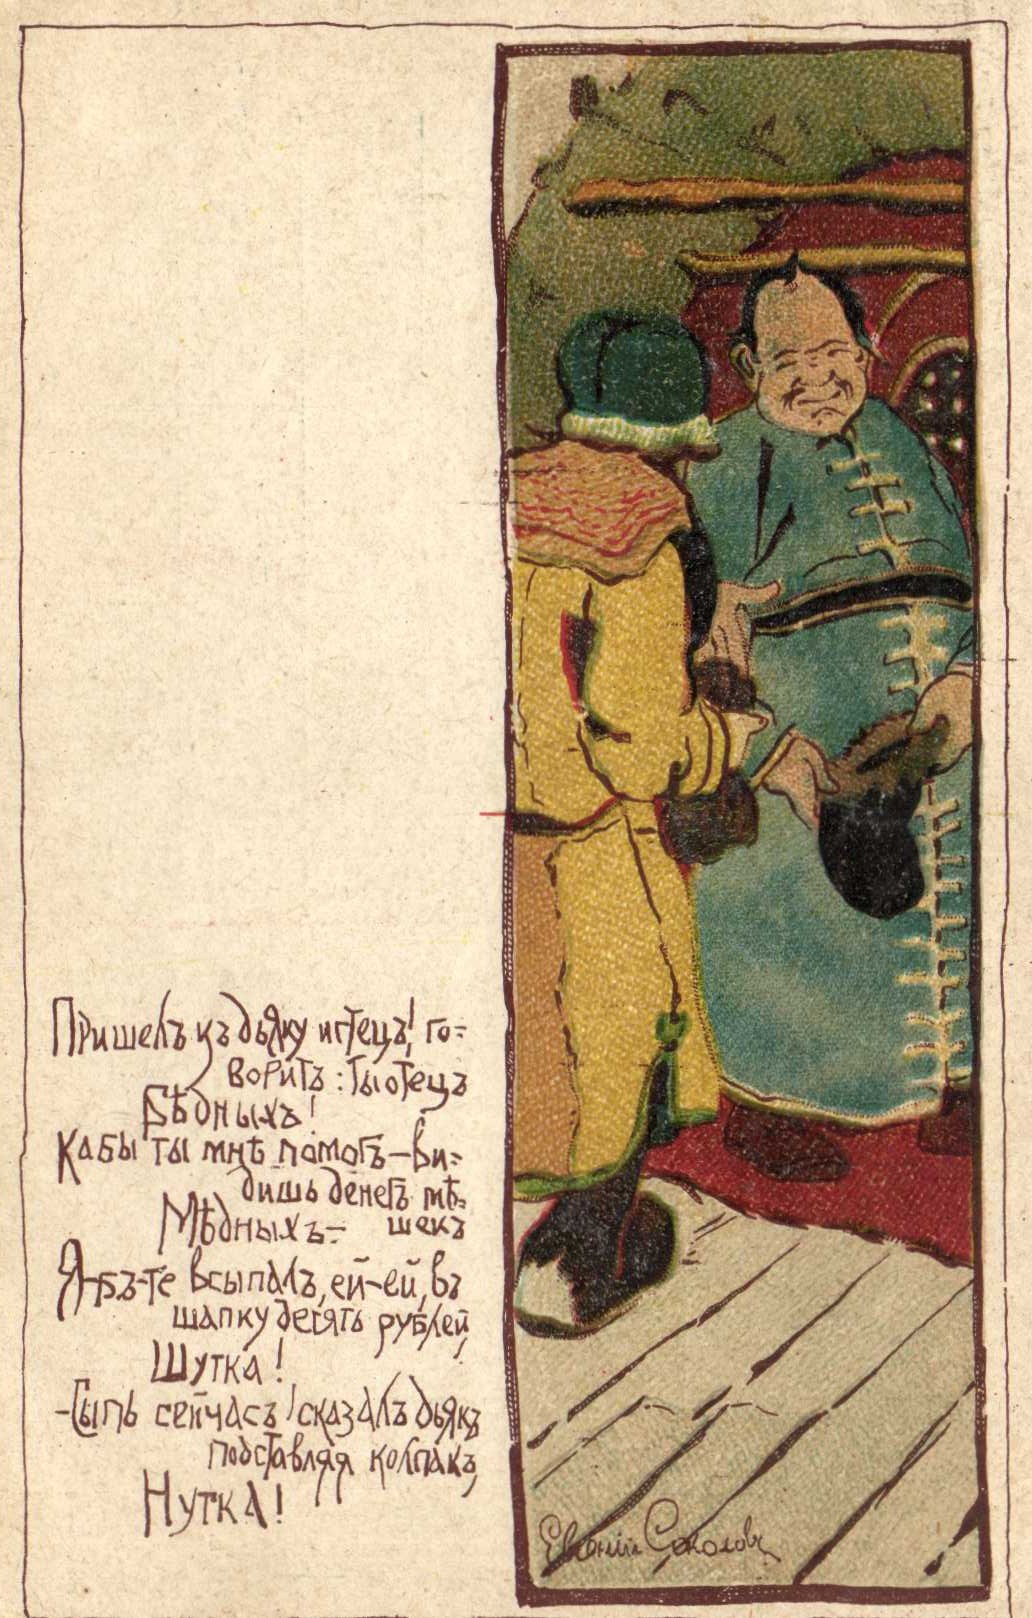 Пришелъ къ дьяку истецъ, го-
ворить: ты отецъ
Бѣдныхъ!
Кабы ты мнѣ помогъ – ви-
дишь денегъ мѣ-
Мѣдныхъ – шекъ
Я-бъ-те всыпалъ, ей-ей, въ
шапку десять рублей,
Шутка!
– Сыпь сейчасъ, сказалъ дьякъ
подставляя колпакъ,
Нутка!
Евгеній Соколовъ